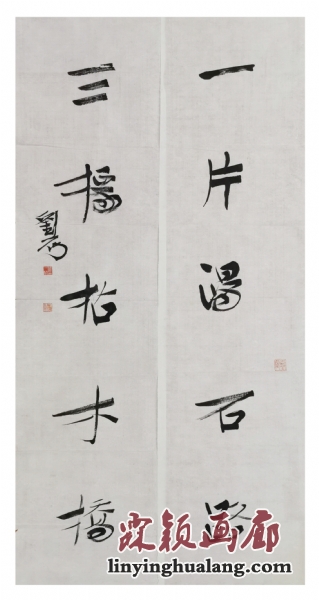 一片石路
三摇枯木橋
劉
霖颖画廊
linyinghualang.com